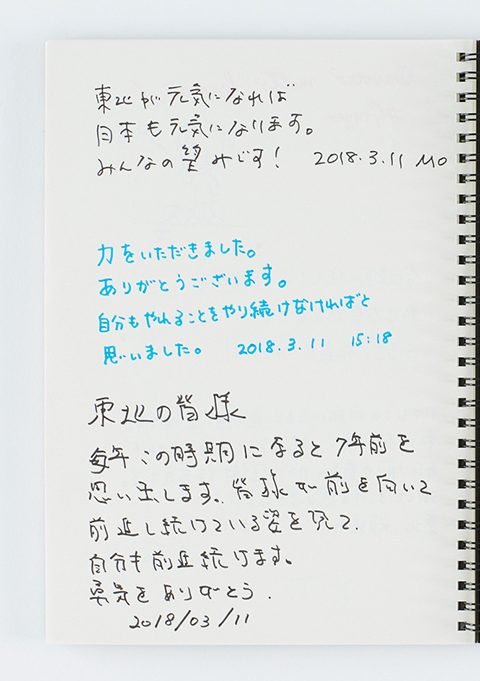 東北が元気になれば
日本も元気になります。
みんなの望みです! 2018.3.11 MO
力をいただきました。
ありがとうございます。
自分もやれることをやり続けなければと
思いました。 2018.3.11 15:18
東北の皆様
毎年この時期になると7年前を
思い出します。皆様が前を向いて
前進し続けている姿を見て、
自分も前進続けます。
勇気をありがとう.
2018/03/11